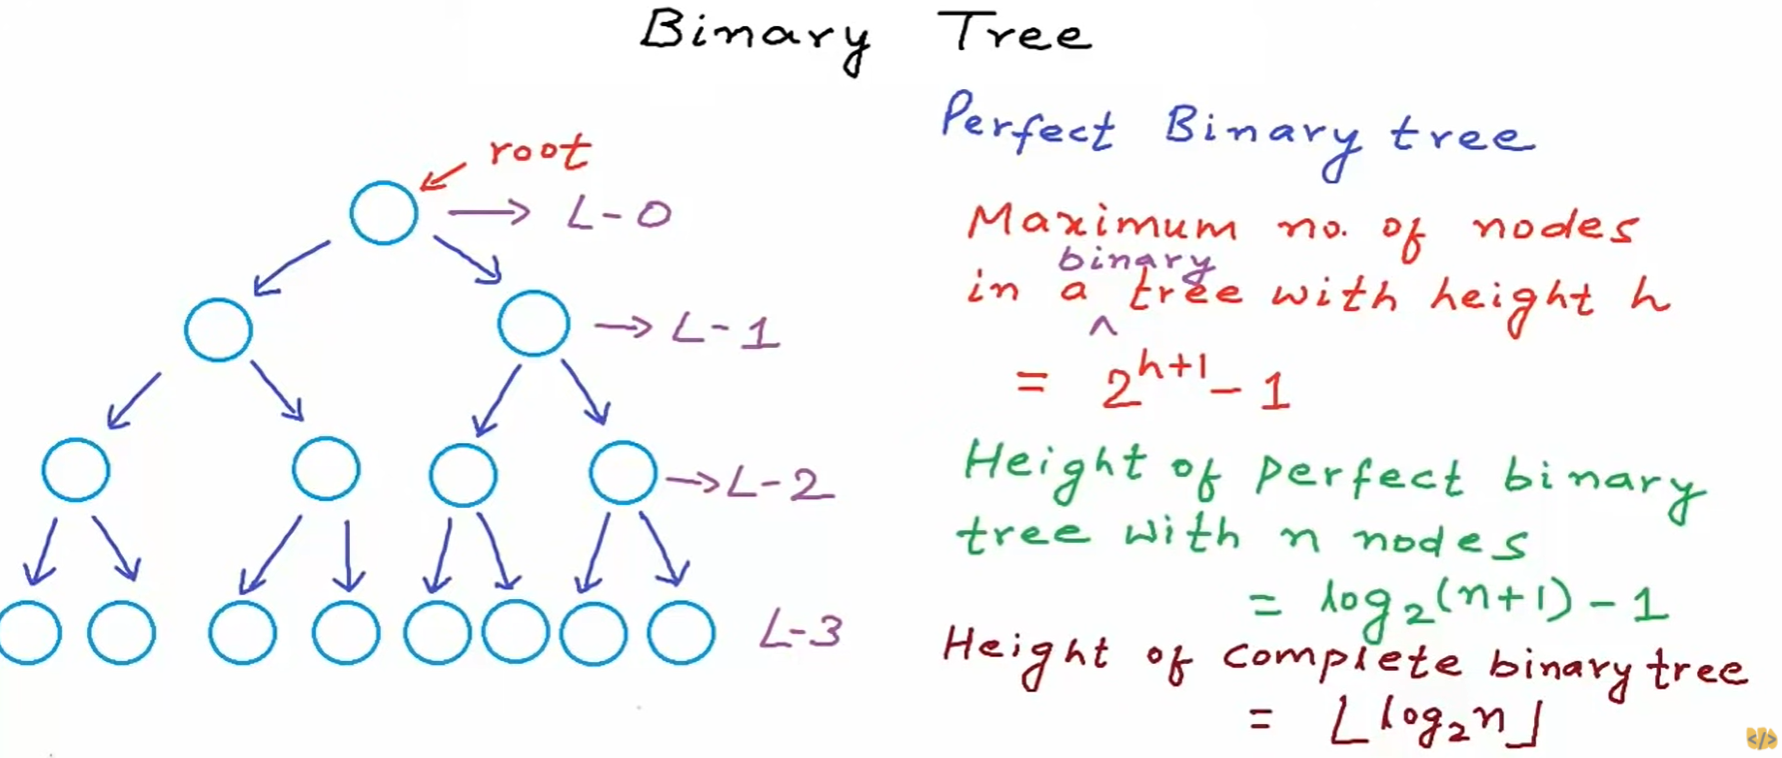 Binary Tree
root
L-0
L-1
L-2
L-3
Perfect Binary tree
Maximum no. of nodes
binary
in a ^ tree with height h
= 2^{h+1} - 1
Height of perfect binary
tree with n nodes
= log₂(n+1) - 1
Height of complete binary tree
= ⌊log₂n⌋
</>